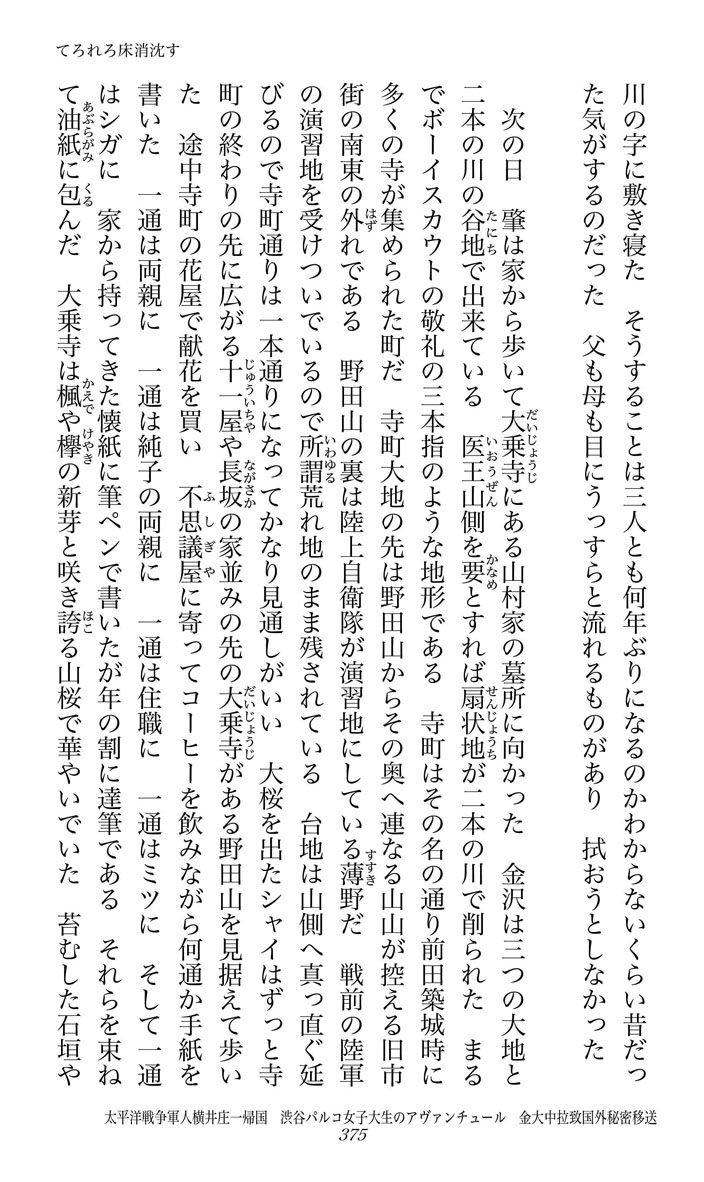 てろれろ床消沈す
川の字に敷き寝た　そうすることは三人とも何年ぶりになるのかわからないくらい昔だっ
た気がするのだった　父も母も目にうっすらと流れるものがあり　拭おうとしなかった
次の日　肇は家から歩いて大乗寺にある山村家の墓所に向かった　金沢は三つの大地と
二本の川の谷地で出来ている　医王山側を要とすれば扇状地が二本の川で削られた　まる
でボーイスカウトの敬礼の三本指のような地形である　寺町はその名の通り前田築城時に
多くの寺が集められた町だ　寺町大地の先は野田山からその奥へ連なる山山が控える旧市
街の南東の外れである　野田山の裏は陸上自衛隊が演習地にしている薄野だ　戦前の陸軍
の演習地を受けついでいるので所謂荒れ地のまま残されている　台地は山側へ真っ直ぐ延
びるので寺町通りは一本通りになってかなり見通しがいい　大桜を出たシャイはずっと寺
町の終わりの先に広がる十一屋や長坂の家並みの先の大乗寺がある野田山を見据えて歩い
た　途中寺町の花屋で献花を買い　不思議屋に寄ってコーヒーを飲みながら何通か手紙を
書いた　一通は両親に　一通は純子の両親に　一通は住職に　一通はミツに　そして一通
はシガに　家から持ってきた懐紙に筆ペンで書いたが年の割に達筆である　それらを束ね
て油紙に包んだ　大乗寺は楓や欅の新芽と咲き誇る山桜で華やいでいた　苔むした石垣や
太平洋戦争軍人横井庄一帰国　渋谷パルコ女子大生のアヴァンチュール　金大中拉致国外秘密移送
375